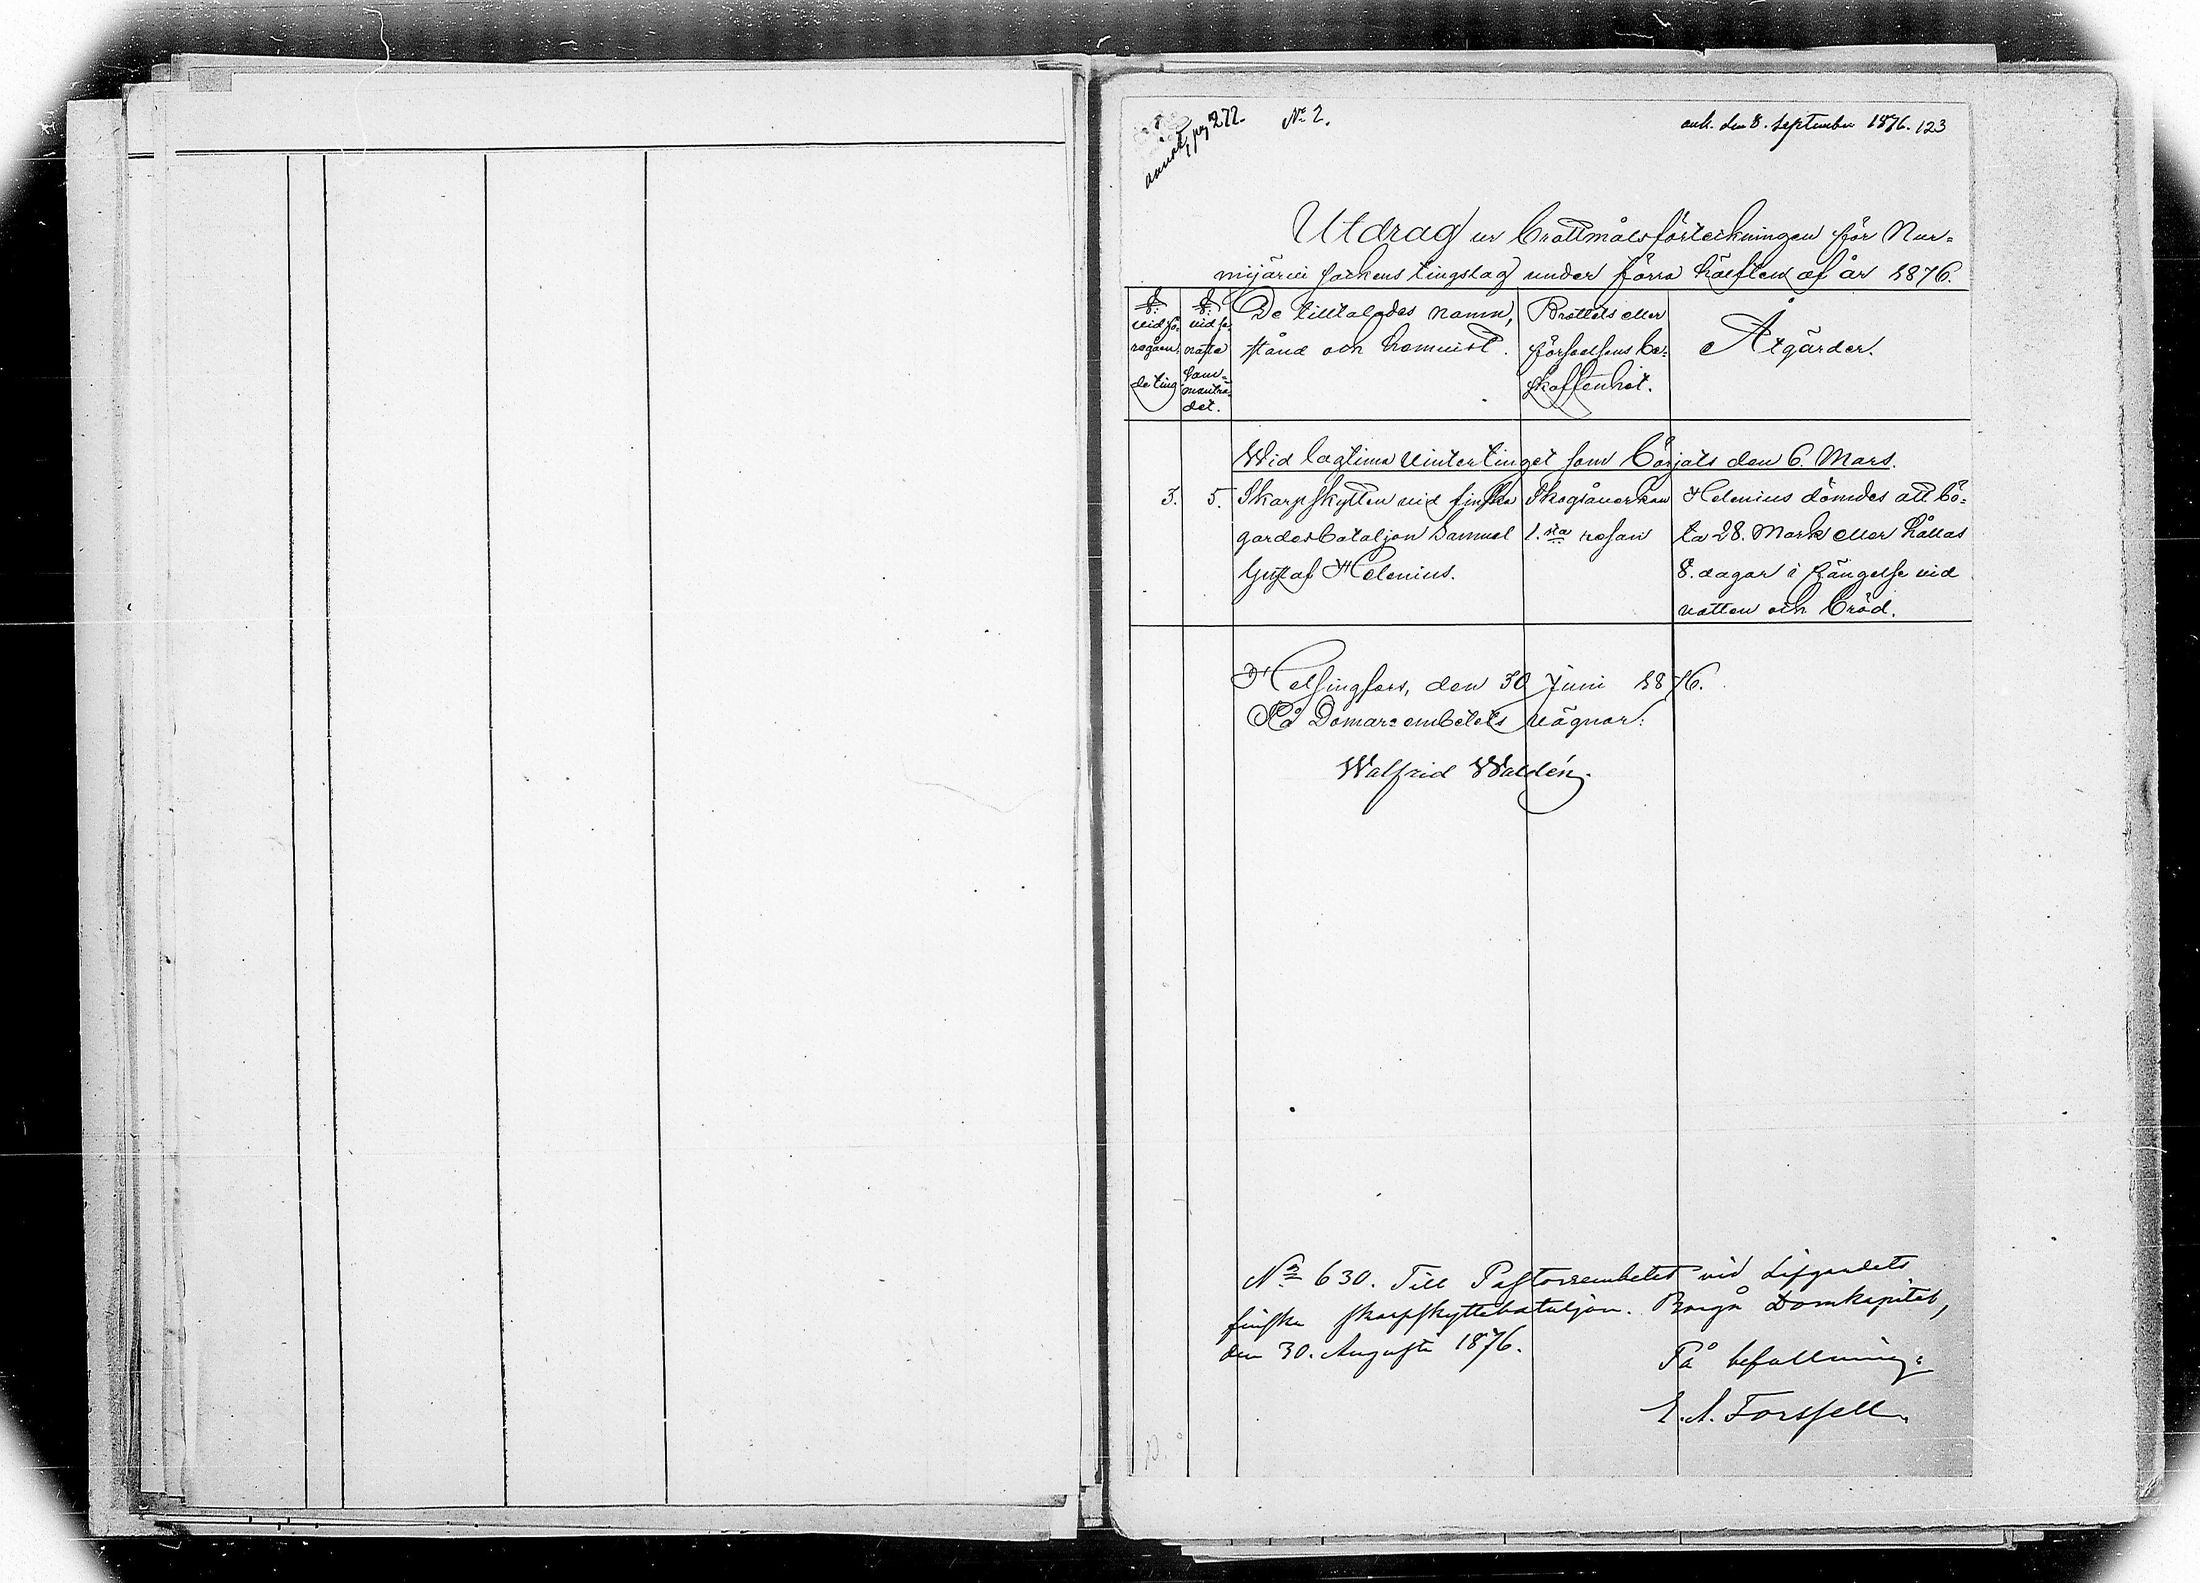 pag 272.
No 2.
ank. den 8. September 1876. 123
Utdrag ur brottmålsförteckningen för Nur-
mijärvi sockens tingslag under förra hälften af år 1876.
§. vid fö-
regåen-
de ting
§. vid se-
naste
sam-
manträ-
det.
De tilltalades namn,
stånd och hemvist.
Brottets eller
förseelsens be-
skaffenhet.
Åtgärder.
Wid lagtima Vintertinget som börjats den 6. Mars.
3. 5. Skarpskytten vid finska
gardesbataljon Samuel
Gustaf Helenius.
Skogsåverkan
1.sta resan
Helenius dömdes att bö-
ta 28. Mark eller hållas
8. dagar i fängelse vid
vatten och bröd.
Helsingfors, den 30 Juni 1876.
På Domare embetets vägnar:
Walfrid Waldén.
No 630. Till Pastorsembetet vid Lifgardets
finska skarpskyttebataljon. Borgå Domkapitel,
den 30. Augusti 1876.
På befallning:
E. A. Forssell.